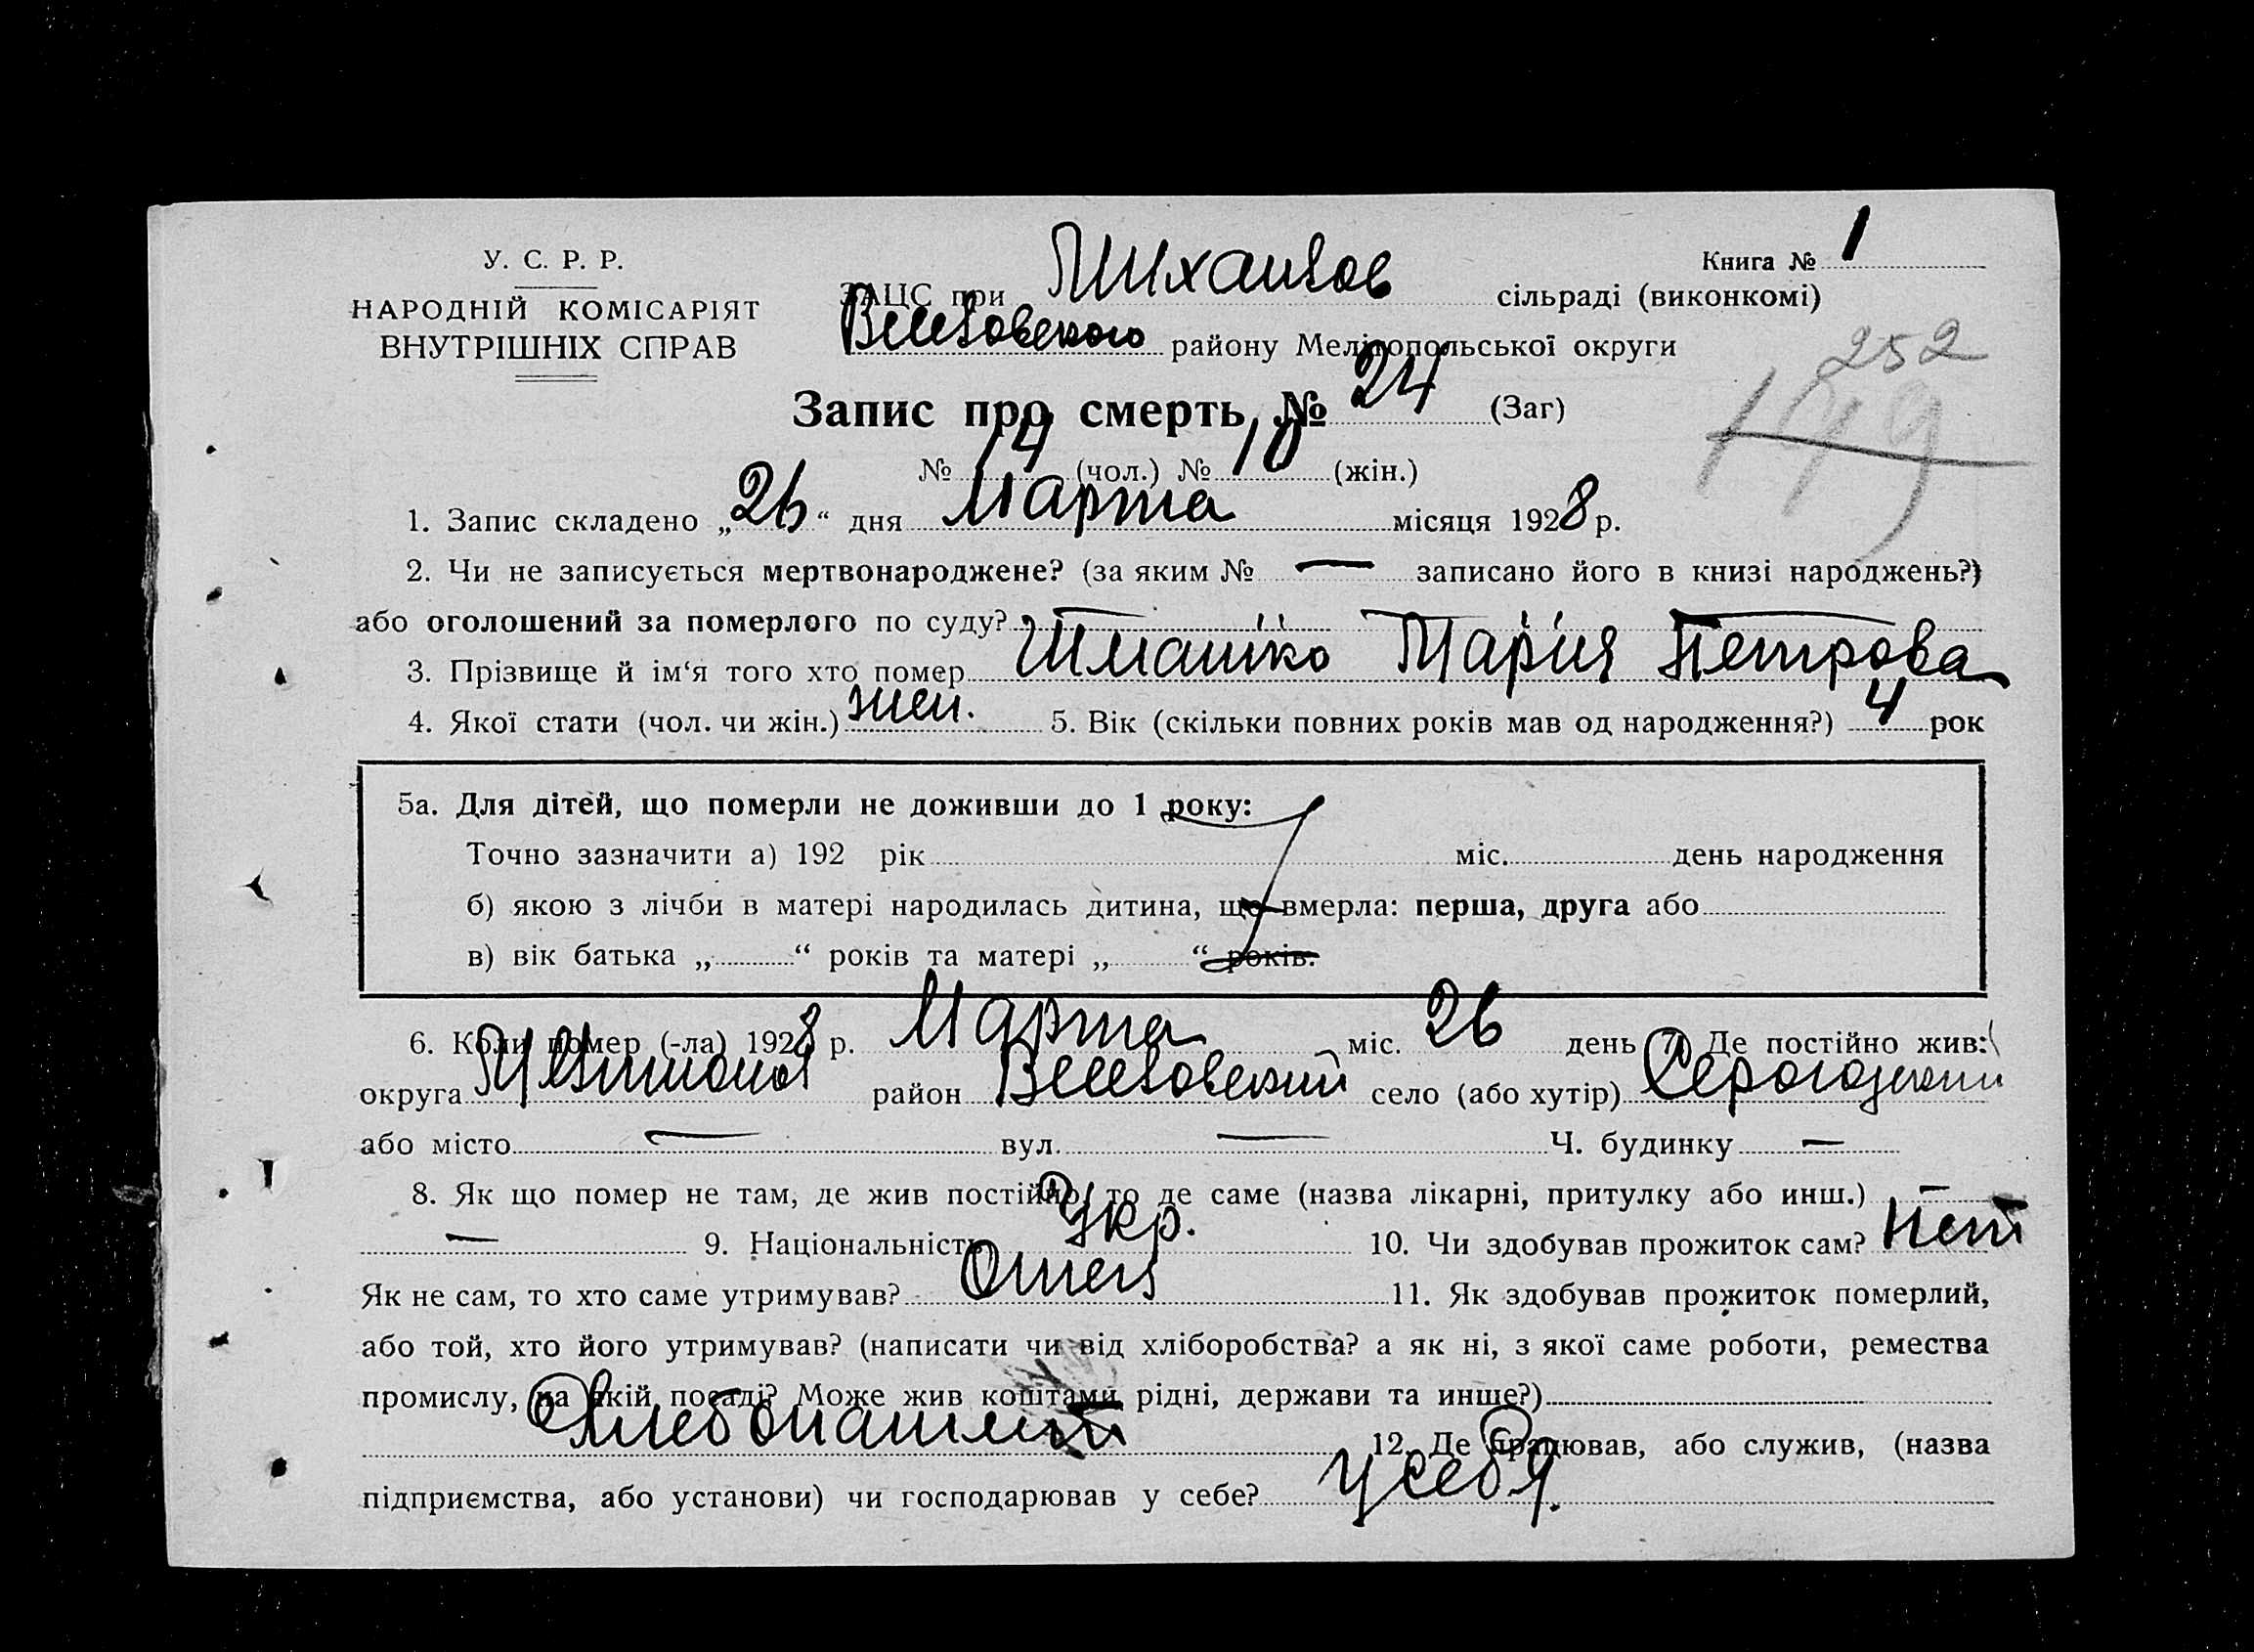 У. С. Р. Р.
НАРОДНІЙ КОМІСАРІЯТ
ВНУТРІШНІХ СПРАВ
Книга № 1
ЗАЦС при Михайлов сільраді (виконкомі)
Веселовского району Мелітопольської округи
252
149
Запис про смерть № 24 (Заг)
№ 14 (чол.) № 10 (жін.)
1. Запис складено „26“ дня Марта місяця 1928 р.
2. Чи не записується мертвонароджене? (за яким № — записано його в книзі народжень?)
або оголошений за померлого по суду?
3. Прізвище й ім‘я того хто помер Мария Петрова
4. Якої стати (чол. чи жін.) жен. 5. Вік (скільки повних років мав од народження?) 4 рок
5а. Для дітей, що померли не доживши до 1 року:
Точно зазначити а) 192 рік міс. день народження
б) якою з лічби в матері народилась дитина, що вмерла: перша, друга або
в) вік батька „ “ років та матері „ “ років.
6. Коли помер (-ла) 1928 р. Марта міс. 26 день 7. Де постійно жив:
округа район Веселовский село (або хутір)
або місто — вул. — Ч. будинку —
8. Як що помер не там, де жив постійно, то де саме (назва лікарні, притулку або инш.) —
— 9. Національність Укр. 10. Чи здобував прожиток сам? Нет
Як не сам, то хто саме утримував? Отец 11. Як здобував прожиток померлий,
або той, хто його утримував? (написати чи від хліборобства? а як ні, з якої саме роботи, ремества
промислу, на якій посаді? Може жив коштами рідні, держави та инше?)
Хлебопашест 12. Де працював, або служив, (назва
підприємства, або установи) чи господарював у себе? У себя.